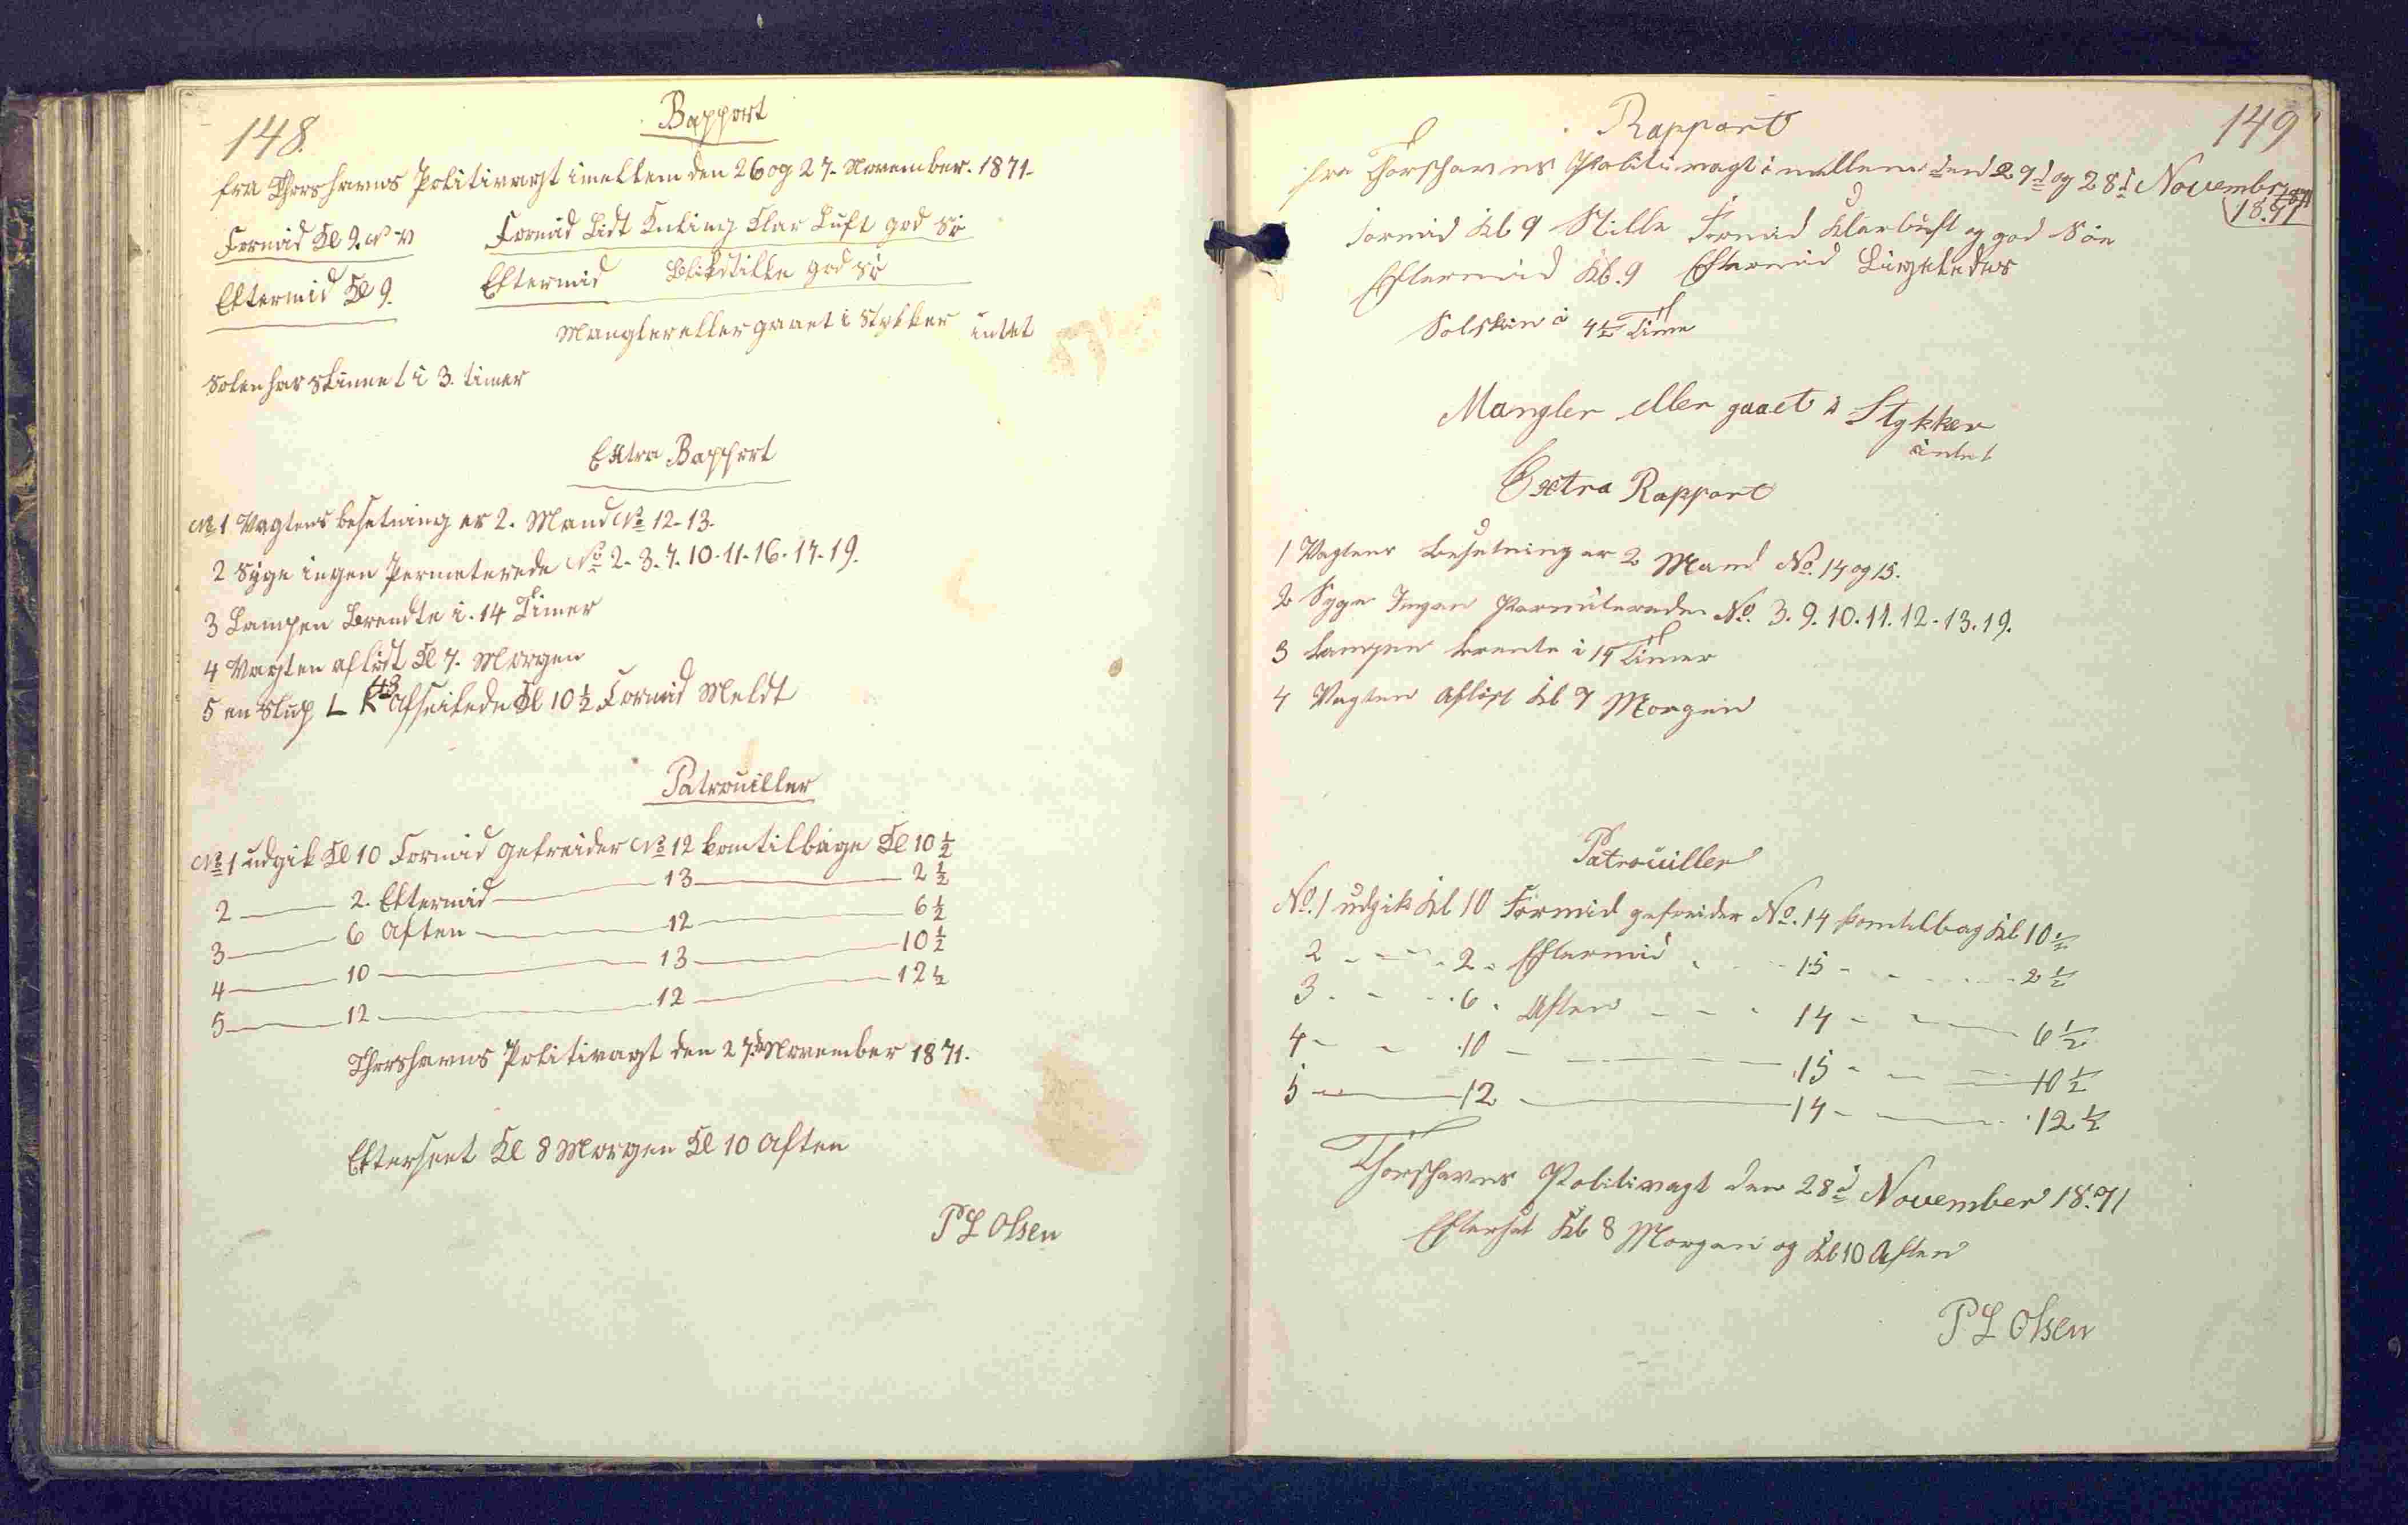 148.
Rapport
fra Thorshavns Politivagt imellem den 26 og 27. November. 1871.
Formid Kl 9. N V Formid Lidt Kuling Klar Luft god Sö
Eftermid Kl 9. Eftermid Blikstille god Sö
Mangler eller gaaet i Stykker intet
Solen har skinnet i 3. timer
Extra Rapport
No 1 Vagtens besetning er 2. Mand No 12-13.
2 Syge ingen Permeterede No 2-3.7.10-11-16-17-19.
3 Lampen Brendte i. 14 Timer
4 Vagten aflöst Kl 7. Morgen
5 en Slup L K 43 Afseilede Kl 10 1/2 Formid Meldt
Patrouiller
No 1 udgik Kl 10 Formid gefreider No 12 kom tilbage Kl 10 1/2
2 — 2. Eftermid — 13 — 2 1/2
3 — 6 Aften — 12 — 6 1/2
4 — 10 — 13 — 10 1/2
5 — 12 — 12 — 12 1/2
Thorshavns Politivagt den 27de November 1871.
Efterseet Kl 8 Morgen Kl 10 Aften
P L Olsen
149
Rapport
fra Thorshavns Politivagt imellem den 27d og 28d November
1871
Formid Kl 9 Stille Formid Klarluft og god Söe
Eftermid Kl. 9 Eftermid Ligeledes
Solskin i 4 1/2 Time
Mangler eller gaaet i Stykker
intet
Extra Rapport
1 Vagtens Besetning er 2 Mand No. 14 og 15.
2 Syge Ingen Permiterede No. 3. 9. 10. 11. 12-13. 19.
3 Lampen brente i 14 Timer
4 Vagten Aflöst Kl 7 Morgen
Patrouiller
No. 1 udgik Kl 10 Formid gefreider No. 14 kom tilbag Kl 10 1/2
2 - - - 2 - Eftermid - - 15 - - - 2 1/2
3 - - - 6 - Aften - - - 14 - - 6 1/2
4 - - 10 - — 15 - - 10 1/2
5 — 12 — 14 - — 12 1/2
Thorshavns Politivagt den 28d November 1871
Efterset Kl 8 Morgen og Kl 10 Aften
P L Olsen